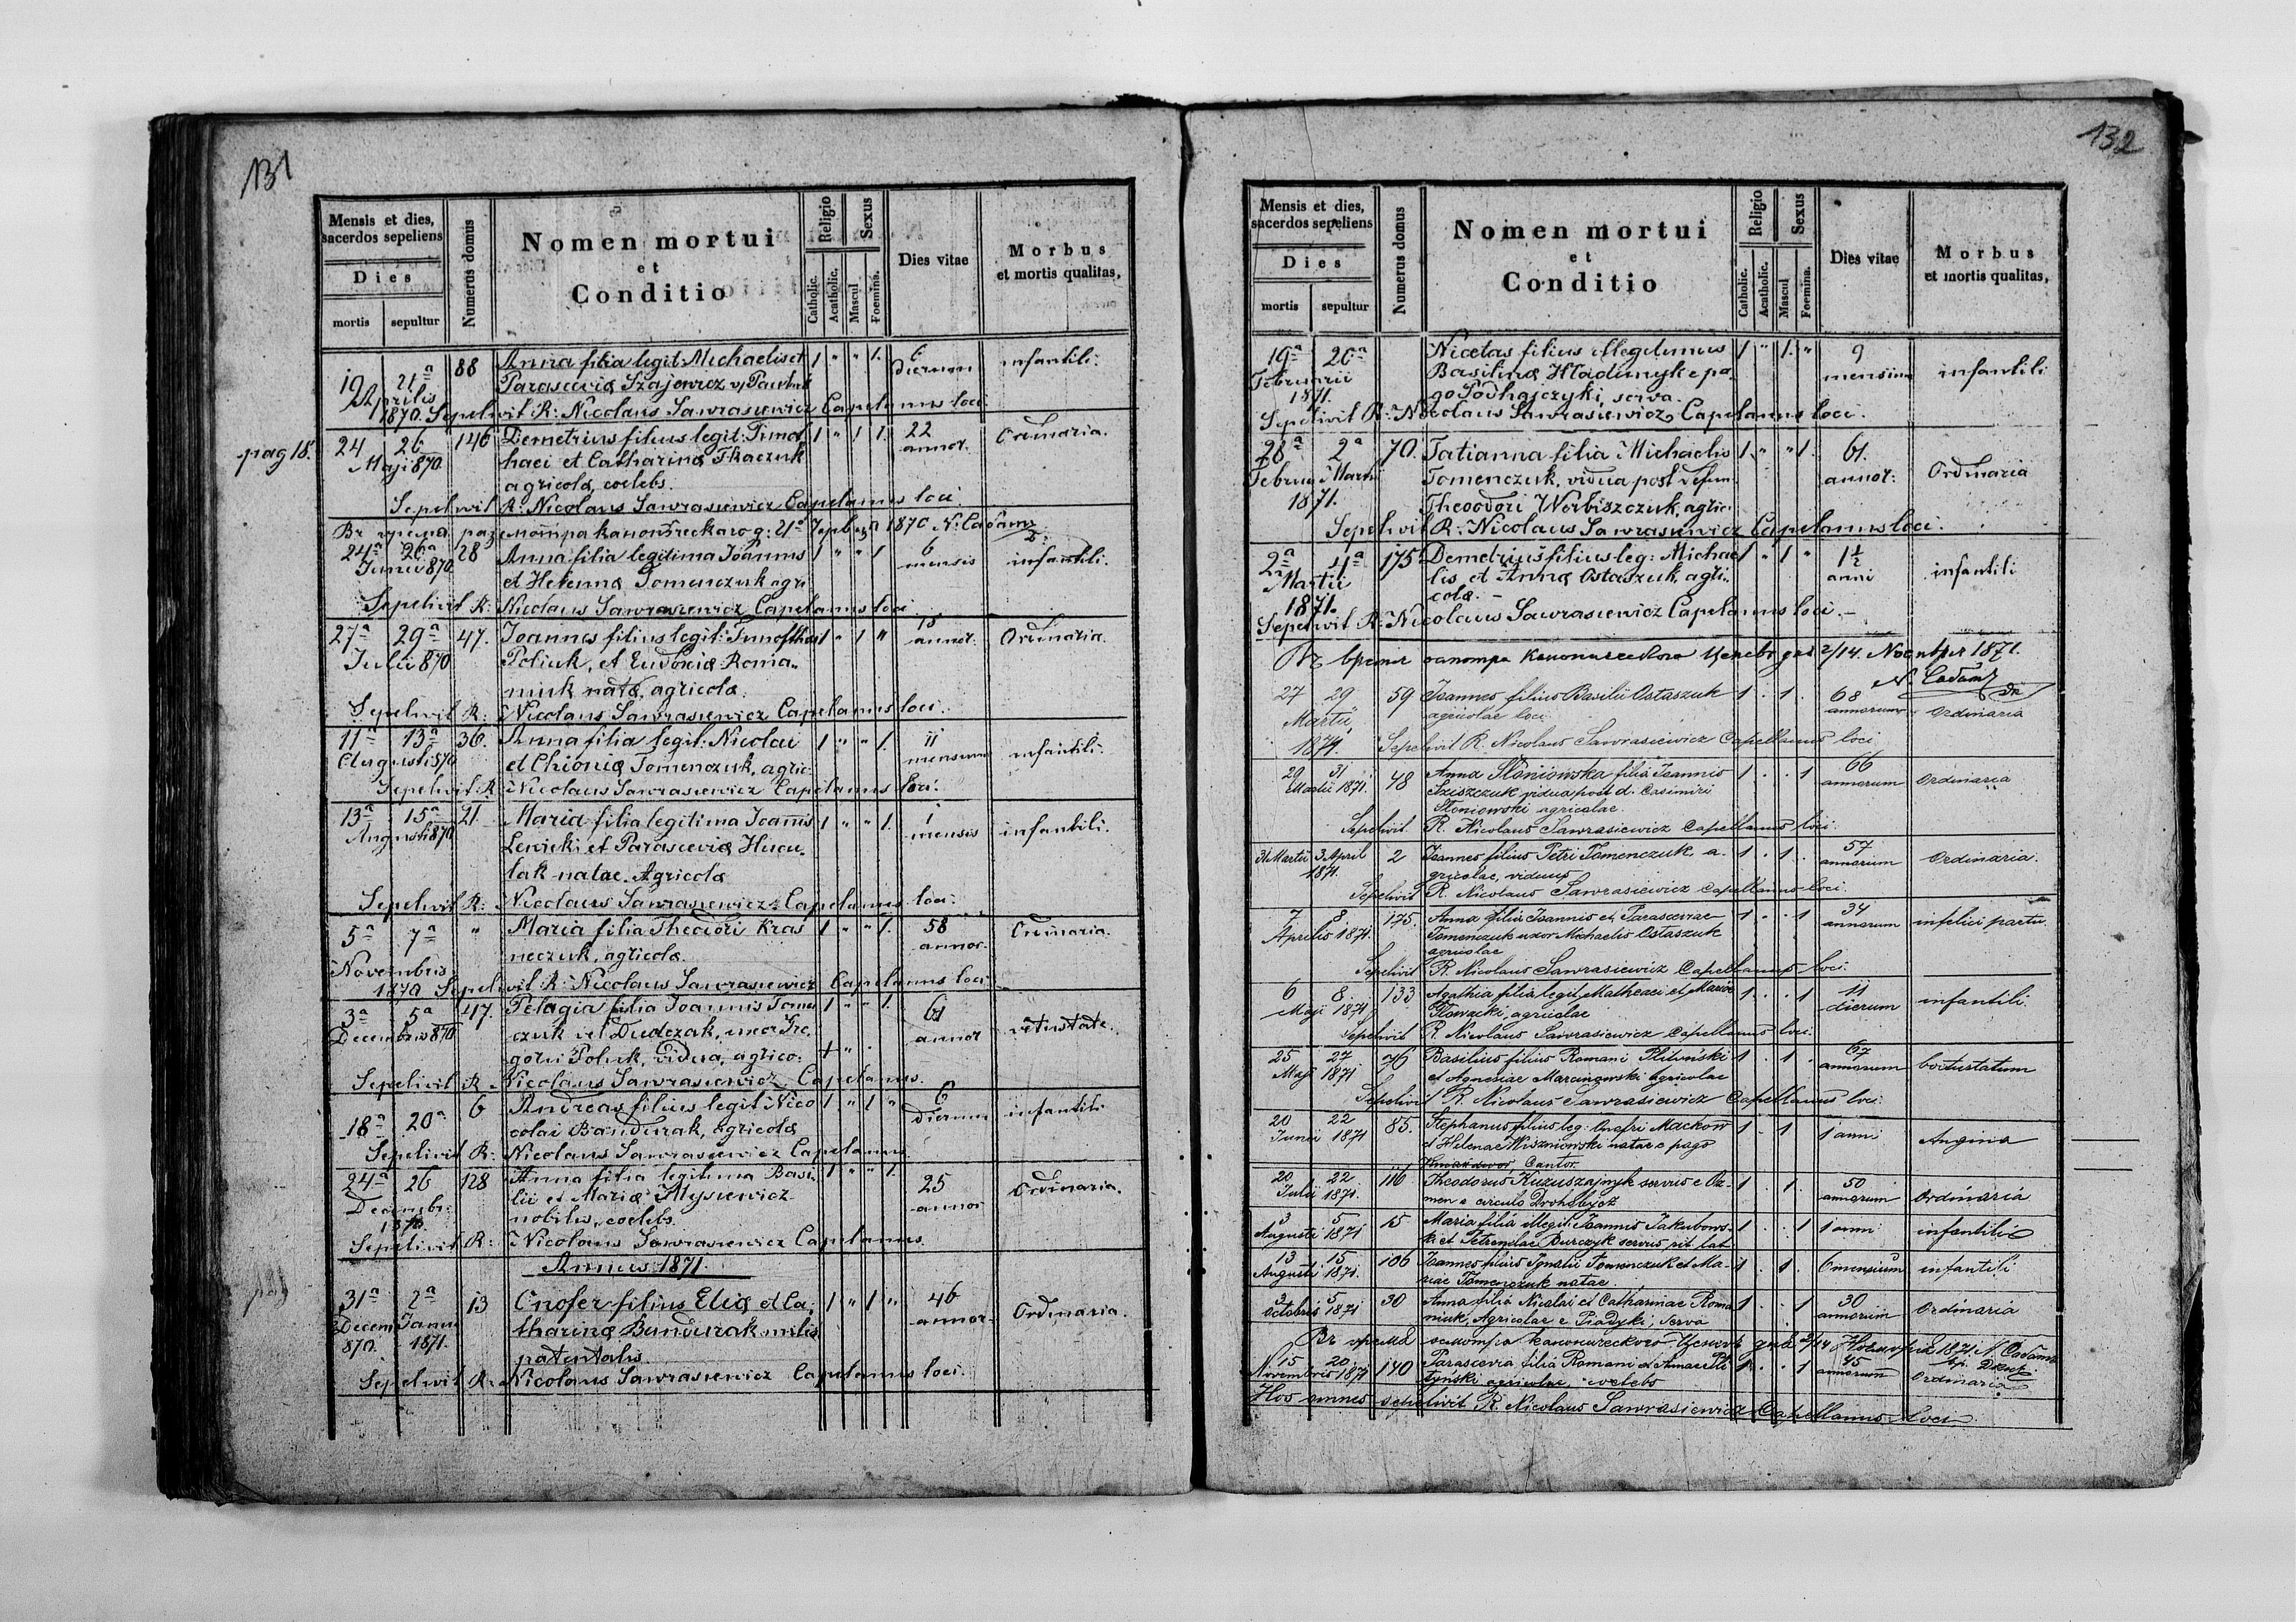 131
Mensis et dies,
sacerdos sepeliens
Dies
mortis sepultur
Numerus domus
Nomen mortui
et
Conditio
Religio
Catholic. Acatholic.
Sexus
Mascul. Foemina.
Dies vitae
Morbus
et mortis qualitas,
19 21ª 88 Anna filia legit: Michaelis et 1 " " 1. 6 infantili.
Aprilis Parasceviæ Szajewicz dierum
1870. Sepelivit R: Nicolaus Sawrasiewicz Capelanus loci
pag 18.
24 26 146 Demetrius filius legit: Timot 1 " 1 1. 22 Ordinaria.
Maji 870 haei et Catharinæ Tkaczuk annor.
agricola, coelebs.
Sepelivit R: Nicolaus Sawrasiewicz Capelanus loci
24ª 26ª 28 Anna filia legitima Joannis 1 " " 1 6 infantili.
Junii 870 et Helennæ Tomenczuk agri mensis
Sepelivit R: Nicolaus Sawrasiewicz Capelanus loci
27ª 29ª 47. Joannes filius legit: Timofthei 1 " 1 " 15 Ordinaria.
Julii 870 Poliuk, et Eudoxiæ Roma- annor.
niuk natæ, agricola.
Sepelivit R: Nicolaus Sawrasiewicz Capelanus loci.
11ª 13ª 36. Anna filia legit: Nicolai 1 " " 1. 11 infantili.
Augusti 870 et Chioniæ Tomenczuk, agric: mensium
Sepelivit R: Nicolaus Sawrasiewicz Capelanus loci.
13ª 15ª 21 Maria filia legitima Joannis 1 " " 1. 1 infantili.
Augusti 870 Lewicki et Parasceviæ Hucu- mensis
lak natae. Agricola
Sepelivit R: Nicolaus Sawrasiewicz Capelanus loci.
5ª 7ª " Maria filia Theodori Kras 1 " " 1. 58 Ordinaria.
neczuk, agricola. annor.
Novembris
1870 Sepelivit R: Nicolaus Sawrasiewicz Capelanus loci
3ª 5ª 47. Pelagia filia Joannis Tomen 1 " " 1. 61 vetustate.
Decembris 870 czuk vel Dudczak, uxor Gre- annor
gorii Poliuk, vidua, agrico:
Sepelivit R: Nicolaus Sawrasiewicz Capelanus.
18ª 20ª 6 Andreas filius legit Nico 1 " 1 " 6 infantili
colai Bandurak, agricola dierum
Sepelivit R: Nicolaus Sawrasiewicz Capelanus
24ª 26 128 Anna filia legitima Basi- 1 " " 1. 25 Ordinaria.
Decembr: lii et Mariæ Mysiewicz annor
1870 nobilis, coelebs
Sepelivit R: Nicolaus Sawrasiewicz Capelanus.
Annus 1871.
31ª 2ª 13 Onofer filius Eliæ et Ca- 1 " 1 " 46 Ordinaria.
Decem Janu tharinæ Bandurak milis annor.
870. 1871. patentalis.
Sepelivit R: Nicolaus Sawrasiewicz Capelanus loci.
132
Mensis et dies,
sacerdos sepeliens
Dies
mortis sepultur
Numerus domus
Nomen mortui
et
Conditio
Religio
Catholic. Acatholic.
Sexus
Mascul Foemina.
Dies vitae
Morbus
et mortis qualitas,
19ª 20ª Nicetas filius illegitimus 1 " 1. " 9 infantili
Februarii Basilinæ Hladunyk e pa- mensium
1871. go Podhajczyki, serva.
Sepelivit R: Nicolaus Sawrasiewicz, Capelanus loci.
28ª 2ª 70. Tatianna filia Michaelis 1 " " 1. 61. Ordinaria
Februar Martii Tomenczuk, vidua post defun. annor:
1871. Theodori Worbiszczuk, agric.
Sepelivit R: Nicolaus Sawrasiewicz Capelanus loci.
2ª 4ª 175 Demetrius filius leg: Michae 1 " 1 " 1½ infantili
Martii lis et Annæ Ostaszuk, agri- anni
1871. cola.
Sepelivit R: Nicolaus Sawrasiewicz Capelanus loci.
27 29 59 Joannes filius Basilii Ostaszuk 1 . 1 . 68 Ordinaria
Martii agricolae loci annorum
1871. Sepelivit R. Nicolaus Sawrasiewicz Capellanus loci
29 31 48 Anna Słoniowska filia Joannis 1 . . 1 66 Ordinaria
Martii 1871. Iziszczuk vidua post d. Casimiri annorum
Słoniowski agricolae.
Sepelivit R. Nicolaus Sawrasiewicz Capellanus loci.
31 Martii 3 April 2 Joannes filius Petri Tomenczuk a- 1 . 1 . 57 Ordinaria.
1871. gricolae, viduus annorum
Sepelivit R. Nicolaus Sawrasiewicz Capellanus loci.
7 8 175. Anna filia Joannis et Parasceviae 1 . . 1 34 infelici partu.
Aprilis 1871. Tomenczuk uxor Michaelis Ostaszuk annorum
agricolae
Sepelivit R. Nicolaus Sawrasiewicz Capellanus loci.
6 8 133 Agathia filia legit. Mathaei et Mariæ 1 . . 1 11 infantili.
Maji 1871 Nowacki, agricolae dierum
Sepelivit R. Nicolaus Sawrasiewicz Capellanus loci.
25 27 76 Basilius filius Romani Plitynski 1 . 1 . 67 vetustatum
Maji 1871 et Agnesiae Marcinowski agricolae annorum
Sepelivit R. Nicolaus Sawrasiewicz Capellanus loci.
20 22 85. Stephanus filius leg: Onofri Mackow 1 . 1 . 1 anni Angina
Junii 1871 et Helenae Wiszniowski natae e pago
Kniazdwor, Cantor
20 22 116 Theodorus Kuzuszajnyk servus e 1 . 1. 50 Ordinaria
Julii 1871. e circulo Drohobycz annorum
3 5 15 Maria filia illegit: Joannis Jakubows- 1 . . 1 1 anni infantilis
Augusti 1871 ki et Petronelae Burczyk servus rit. lat
13 15 106 Joannes filius Ignatii Tomenczuk et Ma- 1 . 1. 6 mensium infantili
Augusti 1871. riae Tomenczuk natae.
3 5 30 Anna filia Nicolai et Catharinae Roma 1 . . 1 30 Ordinaria
Octobris 1871 niuk, Agricolae e Piadyki, serva annorum
15 20 140 Parascevia filia Romani et Annae Pli 1 . . 1 45 Ordinaria
Novembris 1871 tynski agricolae, coelebs annorum
Hos omnes sepelivit R. Nicolaus Sawrasiewicz Capellanus loci